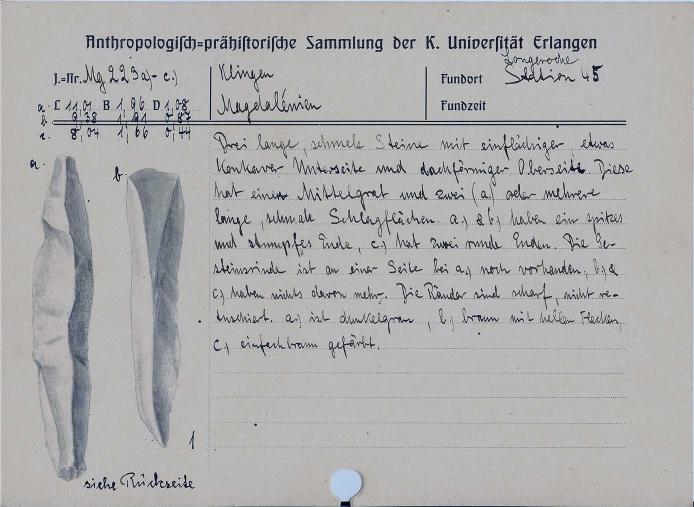 Anthropologisch=prähistorische Sammlung der K. Universität Erlangen
J.=Nr. Mg 223 a) - c.)
Klingen
Magdalénien
Longeroche
Fundort Station 45
Fundzeit
a. L 11,01 B 1,96 D 1,08
b. 9,38 1,91 0,87
c. 8,04 1,66 0,44
Drei lange, schmale Steine mit einflächiger etwas
konkaver Unterseite und dachförmiger Oberseite. Diese
hat einen Mittelgrat und zwei (a) oder mehrere
lange, schmale Schlagflächen. a) & b) haben ein spitzes
und stumpfes Ende, c) hat zwei runde Enden. Die Ge-
steinsrinde ist an einer Seite bei a) noch vorhanden, b) &
c) haben nichts davon mehr. Die Ränder sind scharf, nicht re-
tuschiert. a) ist dunkelgrau, b) braun mit hellen Flecken,
c) einfach braun gefärbt.
a.
b.
1
siehe Rückseite